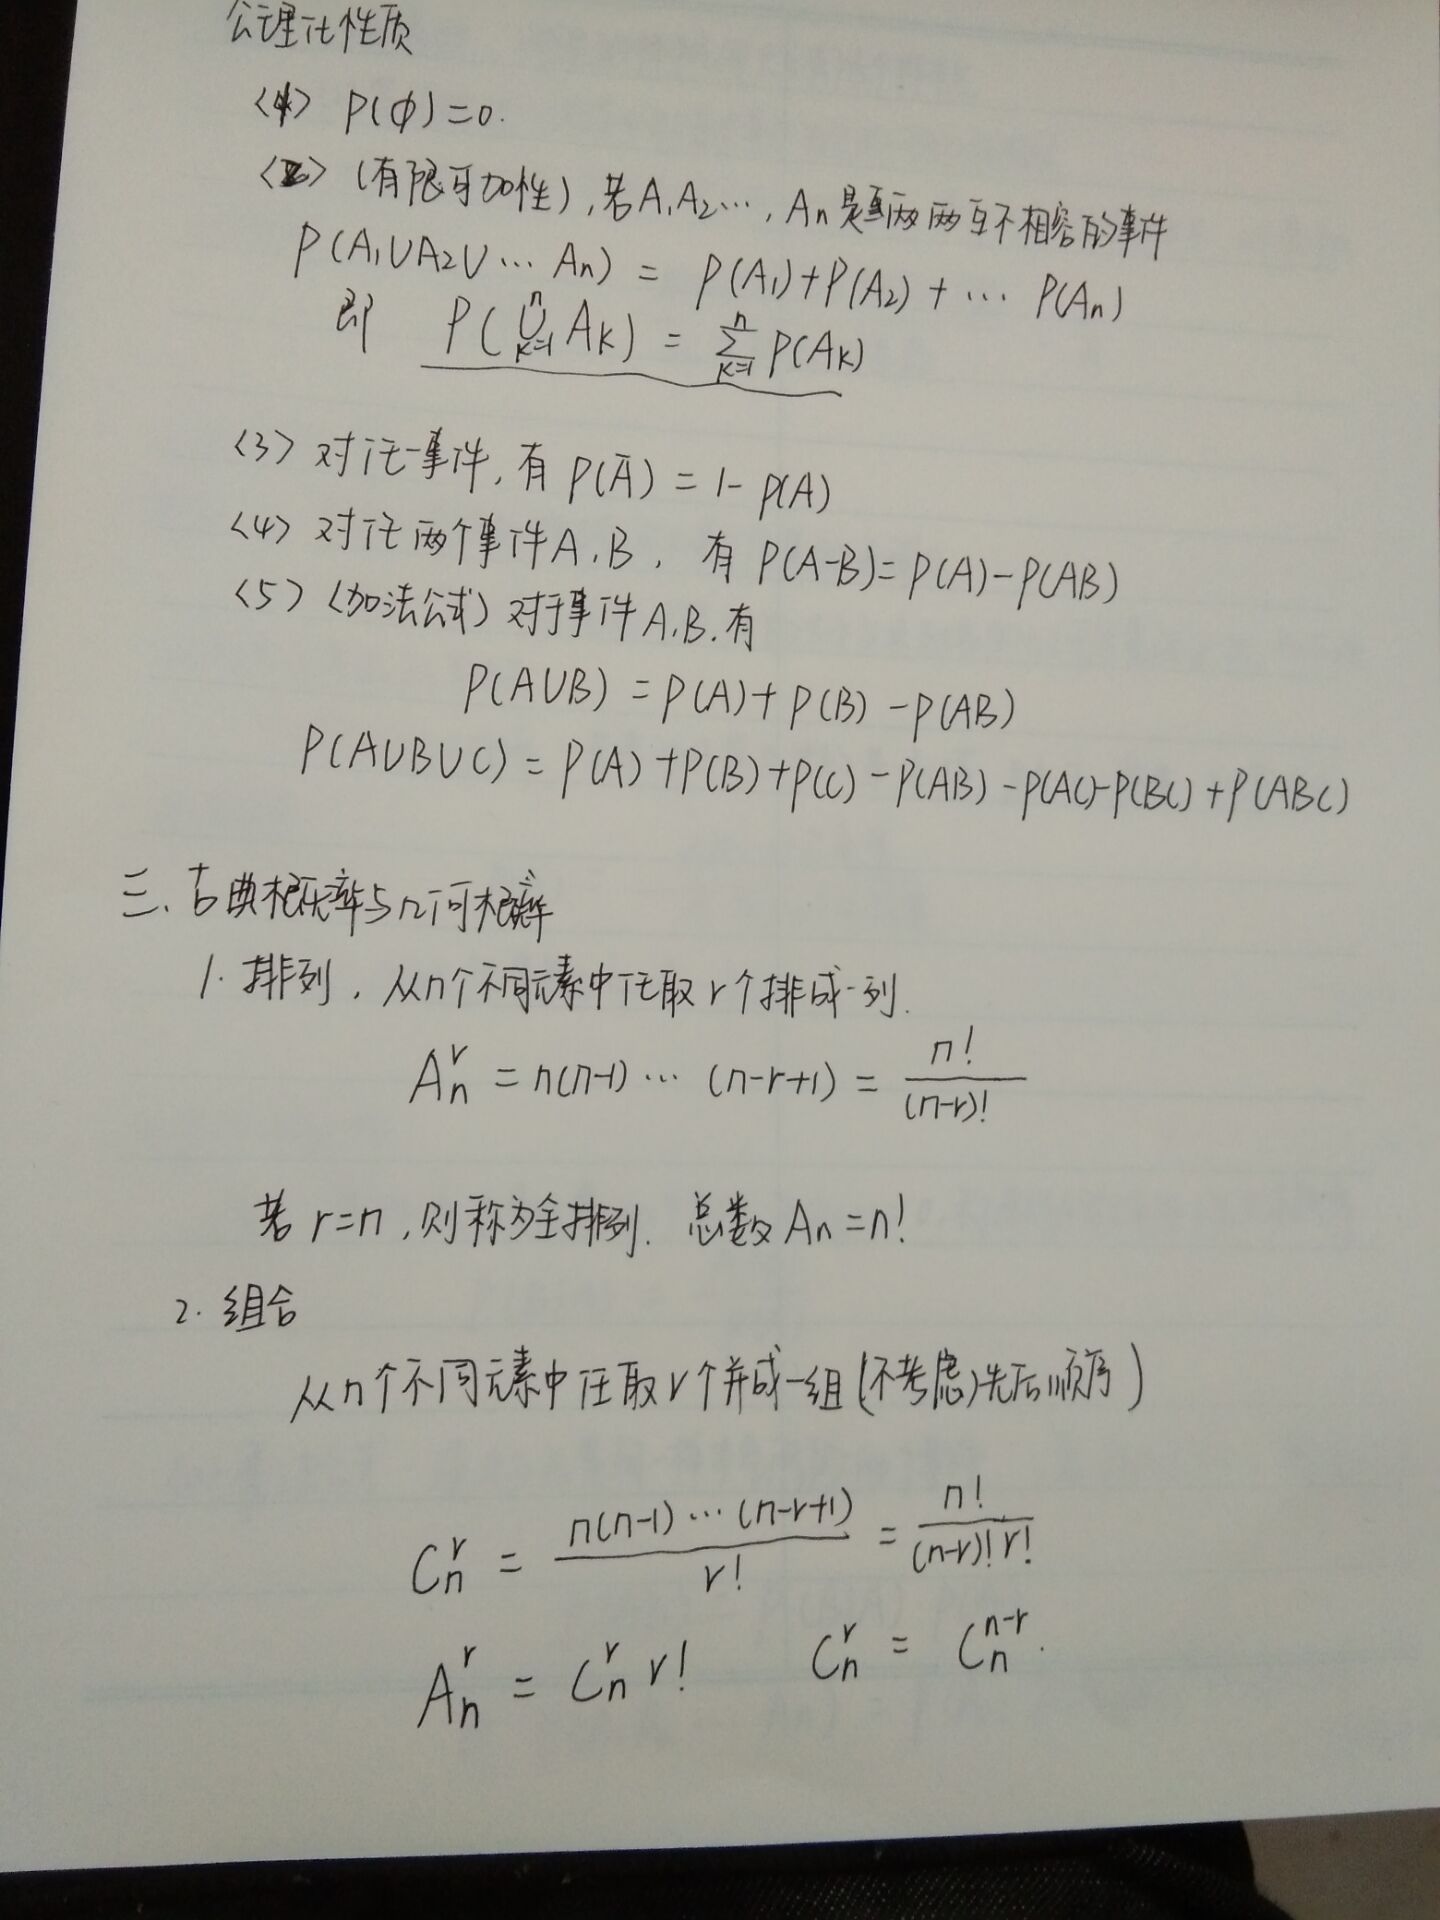 公理化性质
<1> P(φ)=0.
<2> (有限可加性),若A₁A₂…,Aₙ是两两互不相容的事件
P(A₁∪A₂∪…Aₙ) = P(A₁)+P(A₂)+… P(Aₙ)
即 P(⋃ₖ₌₁ⁿ Aₖ) = ∑ₖ₌₁ⁿ P(Aₖ)
<3> 对任一事件,有 P(Ā) = 1-P(A)
<4> 对任两个事件A,B, 有 P(A-B)=P(A)-P(AB)
<5> <加法公式) 对于事件A,B,有
P(A∪B) = P(A)+P(B)-P(AB)
P(A∪B∪C) = P(A)+P(B)+P(C)-P(AB)-P(AC)-P(BC)+P(ABC)
三、古典概率与几何概率
1. 排列,从n个不同元素中任取r个排成一列.
Aₙʳ = n(n-1)…(n-r+1) = n!/(n-r)!
若r=n,则称为全排列. 总数Aₙ=n!
2. 组合
从n个不同元素中任取r个并成一组(不考虑先后顺序)
Cₙʳ = n(n-1)…(n-r+1)/r! = n!/(n-r)!r!
Aₙʳ = Cₙʳ r! Cₙʳ = Cₙⁿ⁻ʳ.